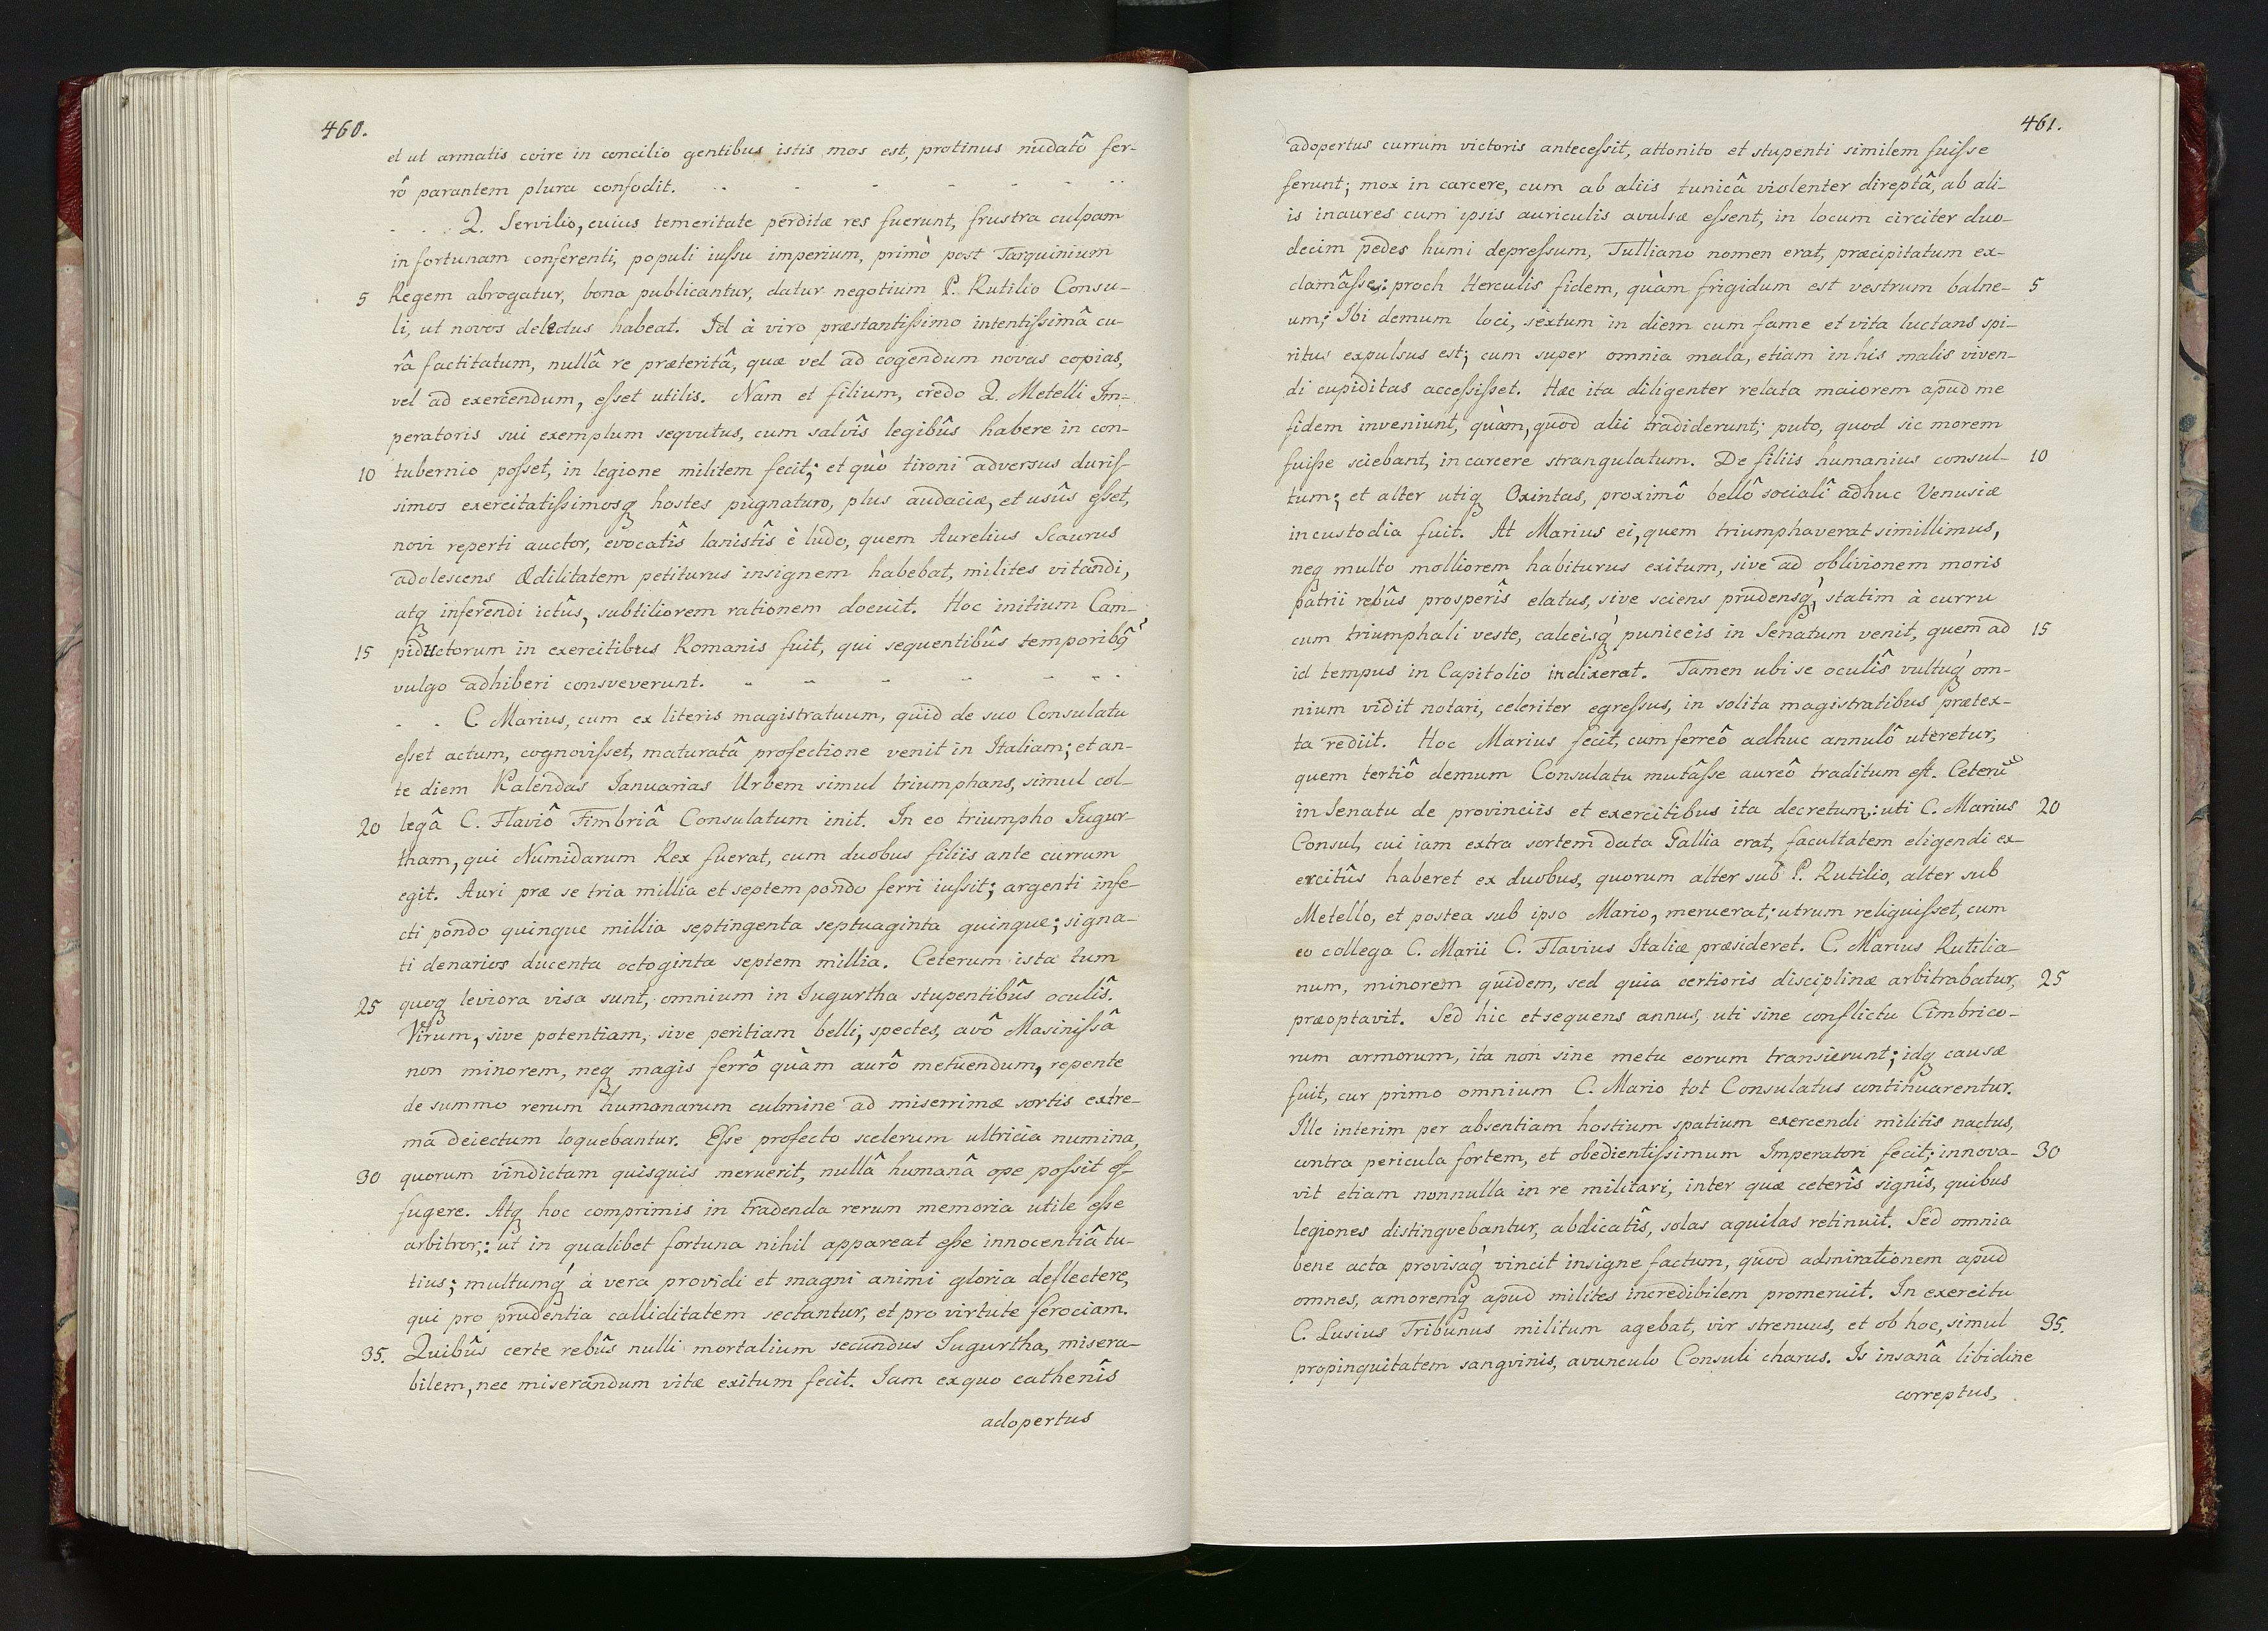 460.
et ut armatis coire in concilio gentibus istis mos est, protinus nudatô fer-
rô parantem plura confodit. .. - - - - - ..
- . . Q. Servilio, cuius temeritate perditæ res fuerunt, frustra culpam
in fortunam conferenti, populi iussu imperium, primò post Tarquinium
5 Regem abrogatur, bona publicantur, datur negotium P. Rutilio Consu-
li, ut novos delectus habeat. Id à viro præstantissimo intentissimâ cu-
râ factitatum, nullâ re præteritâ, quæ vel ad cogendum novas copias,
vel ad exercendum, esset utilis. Nam et filium, credo Q. Metelli Im-
peratoris sui exemplum seqvutus, cum salvîs legibûs habere in con-
10 tubernio posset, in legione militem fecit; et quò tironi adversus duris-
simos exercitatissimosq hostes pugnaturo, plus audaciæ, et usûs esset,
novi reperti auctor, evocatîs lanistîs è ludo, quem Aurelius Scaurus
adolescens Ædilitatem petiturus insignem habebat, milites vitandi,
atq inferendi ictûs, subtiliorem rationem docuit. Hoc initium Cam-
15 piductorum in exercitibus Romanis fuit, qui sequentibûs temporibq
vulgo adhiberi consveverunt. - - - - - - .
- - C Marius, cum ex literis magistratuum, quid de suo Consulatu
esset actum, cognovisset, maturatâ profectione venit in Italiam; et an-
te diem Kalendas Ianuarias Urbem simul triumphans, simul col-
20 legâ C. Flaviô Fimbriâ Consulatum init. In eo triumpho Iugur-
tham, qui Numidarum Rex fuerat, cum duobus filiis ante currum
egit. Auri præ se tria millia et septem pondo ferri iussit; argenti infe-
cti pondo quinque millia septingenta septuaginta quinque; signa-
ti denarios ducenta octoginta septem millia. Ceterum ista tum
25 quoq leviora visa sunt, omnium in Iugurtha stupentibûs oculîs.
Virum, sive potentiam, sive peritiam belli, spectes, avô Masinissâ
non minorem, neq magis ferrô quàm aurô metuendum, repente
de summo rerum humanarum culmine ad miserrimæ sortis extre-
ma deiectum loquebantur. Esse profecto scelerum ultricia numina,
30 quorum vindictam quisquis meruerit, nullâ humanâ ope possit ef-
fugere. Atq hoc comprimis in tradenda rerum memoria utile esse
arbitror,: ut in qualibet fortuna nihil appareat esse innocentiâ tu-
tius; multumq́ à vera providi et magni animi gloria deflectere,
qui pro prudentia calliditatem sectantur, et pro virtute ferociam.
35. Quibûs certe rebûs nulli mortalium secundus Iugurtha, misera-
bilem, nec miserandum vitæ exitum fecit. Iam ex quo cathenîs
adopertus
461.
adopertus currum victoris antecessit, attonito et stupenti similem fuisse
ferunt; mox in carcere, cum ab aliis tunicâ violenter direptâ, ab ali-
is inaures cum ipsis auriculis avulsæ essent, in locum circiter duo-
decim pedes humi depressum, Tulliano nomen erat, præcipitatum ex-
clamâsse: proch Herculis fidem, quàm frigidum est vestrum balne- 5
um; Ibi demum loci, sextum in diem cum fame et vita luctans spi-
ritus expulsus est; cum super omnia mala, etiam in his malis viven-
di cupiditas accessisset. Hæc ita diligenter relata maiorem apud me
fidem inveniunt, quàm, quod alii tradiderunt; puto, quod sic morem
fuisse sciebant, in carcere strangulatum. De filiis humanius consul- 10
tum; et alter utiq Oxintas, proximô bellô socialî adhuc Venusiæ
in custodia fuit. At Marius ei, quem triumphaverat simillimus,
neq multo molliorem habiturus exitum, sive ad oblivionem moris
patrii rebûs prosperîs elatus, sive sciens prudensq́, statim à curru
cum triumphali veste, calceisq́ puniceis in Senatum venit, quem ad 15
id tempus in Capitolio indixerat. Tamen ubi se oculîs vultuq́ om-
nium vidit notari, celeriter egressus, in solita magistratibus prætex-
ta rediit. Hoc Marius fecit, cum ferreô adhuc annulô uteretur,
quem tertiô demum Consulatu mutâsse aureô traditum est. Ceterũ
in Senatu de provinciis et exercitibus ita decretum: uti C. Marius 20
Consul, cui iam extra sortem data Gallia erat, facultatem eligendi ex-
ercitûs haberet ex duobus, quorum alter sub P. Rutilio, alter sub
Metello, et postea sub ipso Mario, meruerat; utrum reliquisset, cum
eo collega C. Marii C. Flavius Italiæ præsideret. C. Marius Rutilia-
num, minorem quidem, sed quia certioris disciplinæ arbitrabatur, 25
præoptavit. Sed hic et sequens annus, uti sine conflictu Cimbrico-
rum armorum, ita non sine metu eorum transierunt; idq causæ
fuit, cur primo omnium C. Mario tot Consulatus continuarentur.
Ille interim per absentiam hostium spatium exercendi militis nactus,
contra pericula fortem, et obedientissimum Imperatori fecit; innova- 30
vit etiam nonnulla in re militari, inter quæ ceterîs signîs, quibus
legiones distingvebantur, abdicatîs, solas aquilas retinuit. Sed omnia
bene acta provisaq́ vincit insigne factum, quod admirationem apud
omnes, amoremq apud milites incredibilem promeruit. In exercitu
C. Lusius Tribunus militum agebat, vir strenuus, et ob hoc, simul 35.
propinquitatem sangvinis, avunculo Consuli charus. Is insanâ libidine
correptus,